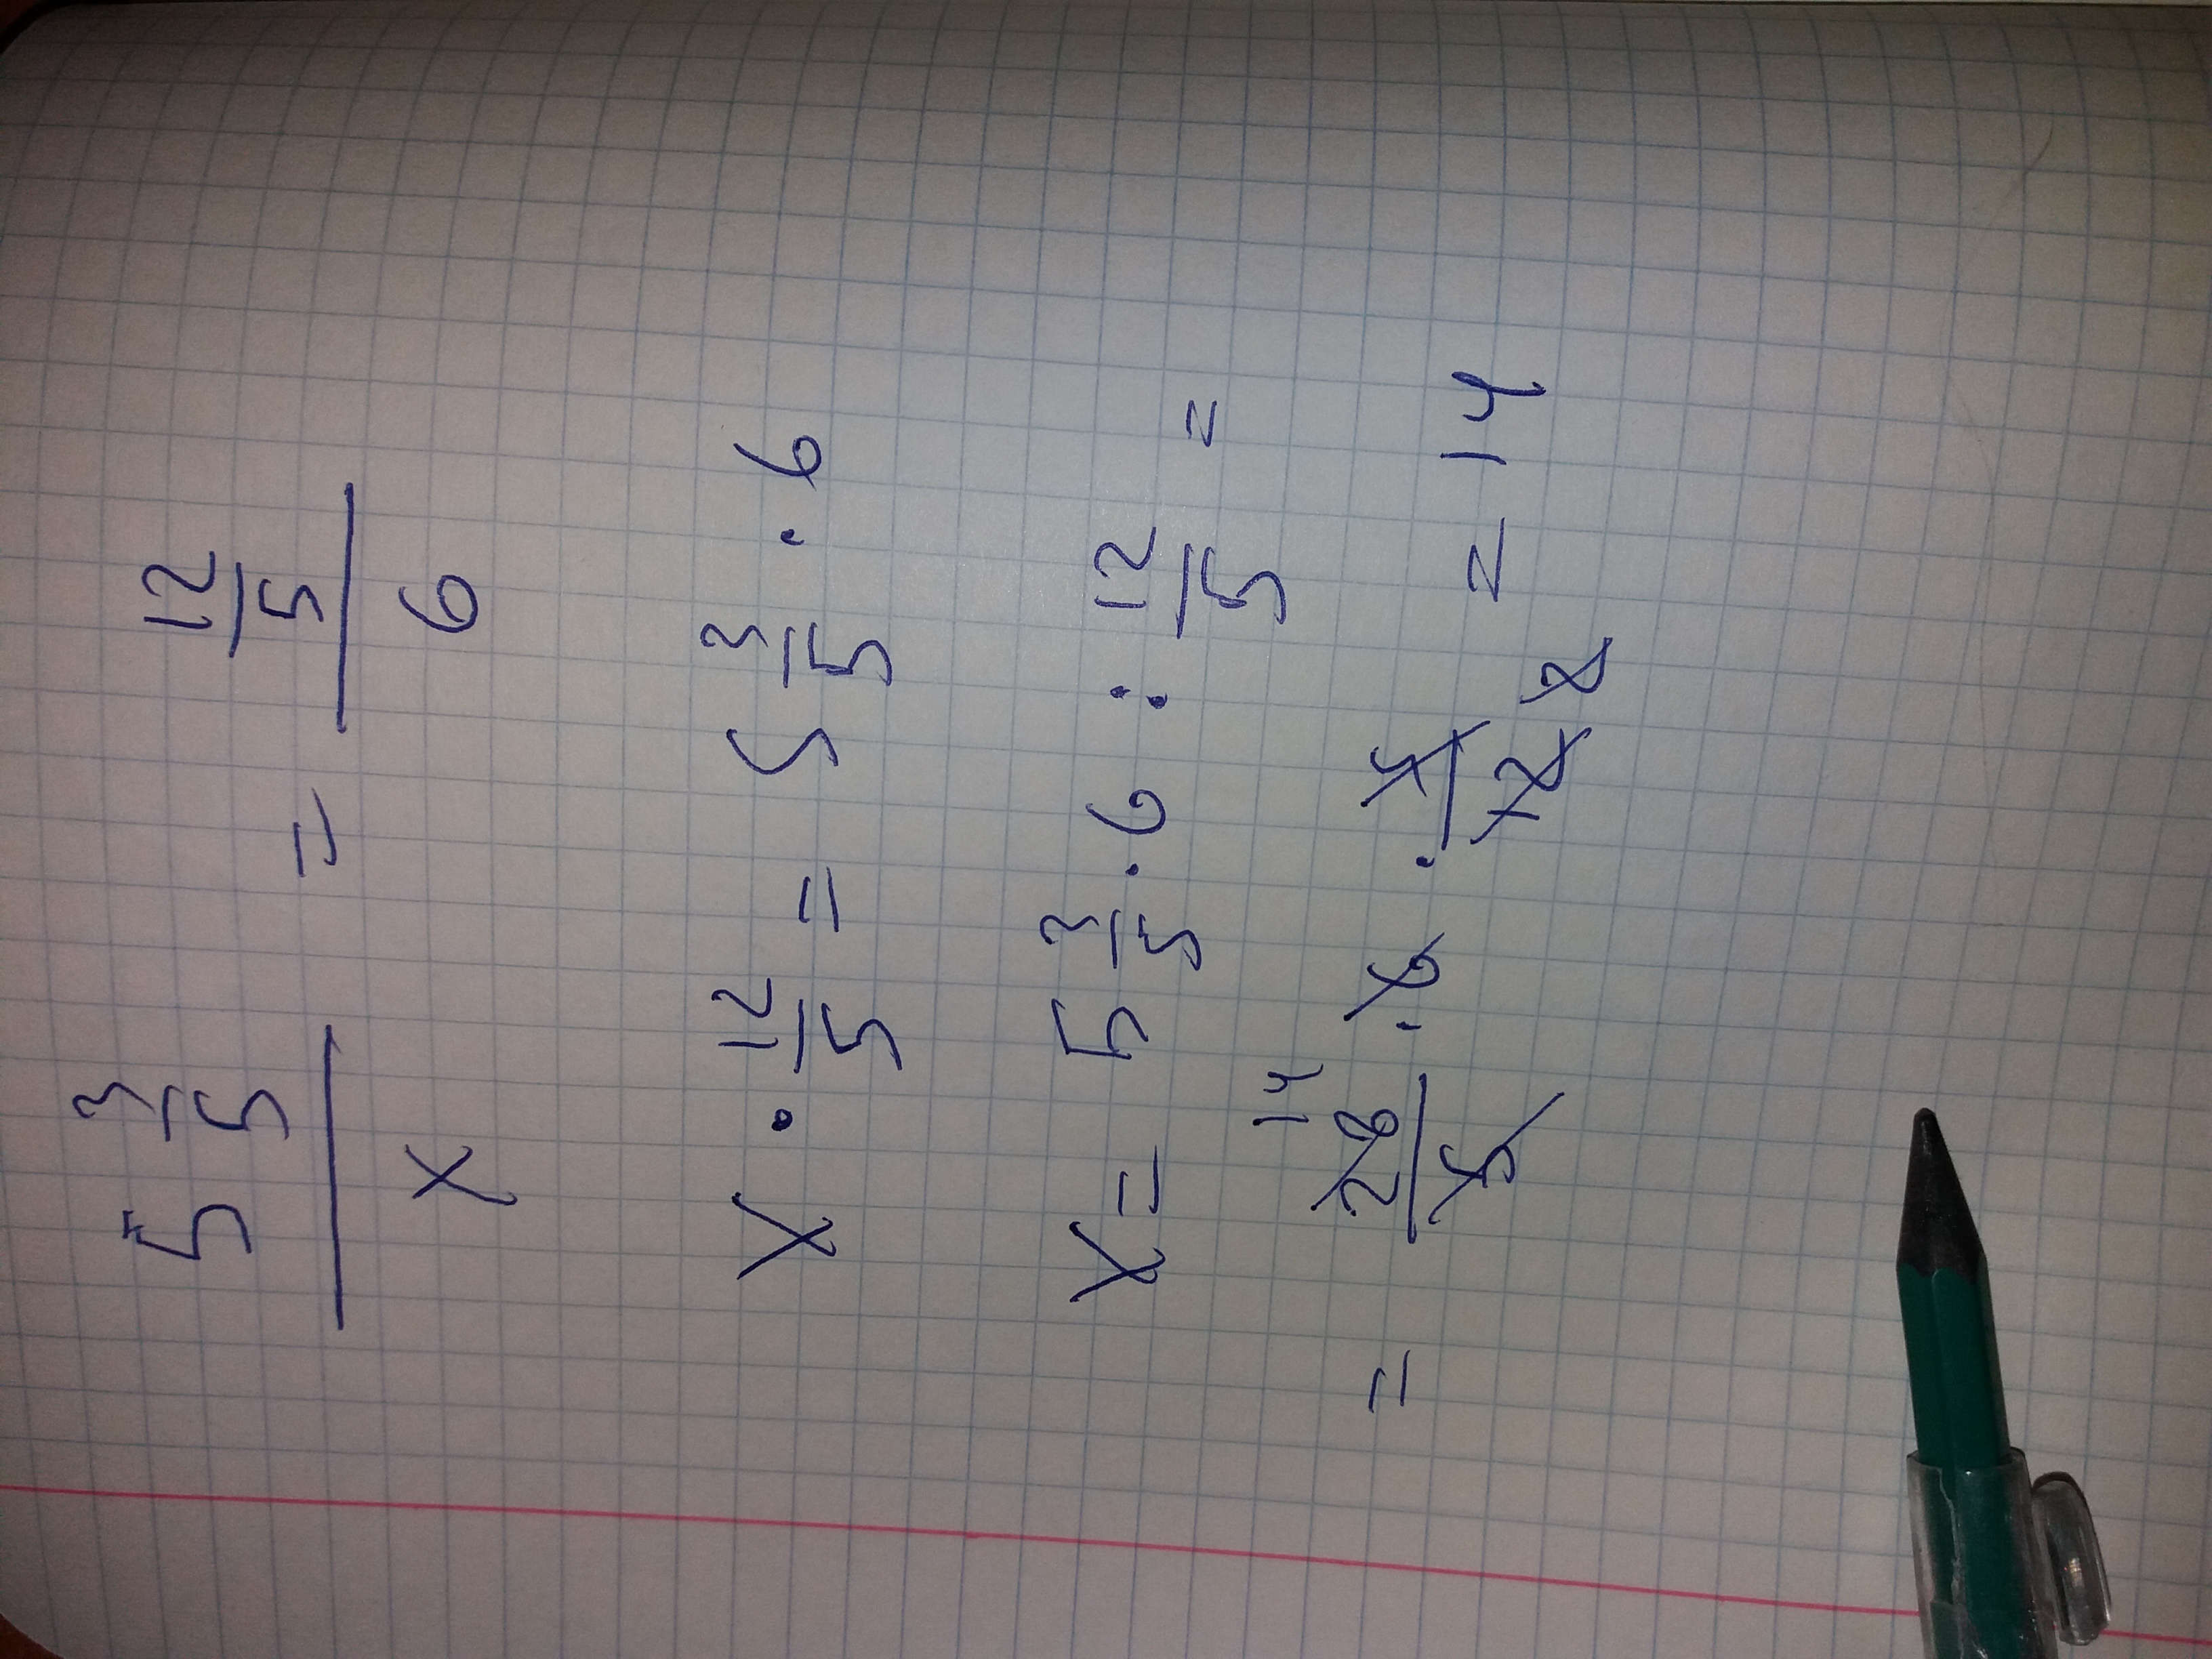 5 3/5 / x = 12/5 / 6
x · 12/5 = 5 3/5 · 6
x = 5 3/5 · 6 : 12/5 =
= 28/5 · 6 · 5/12 = 14
14
2